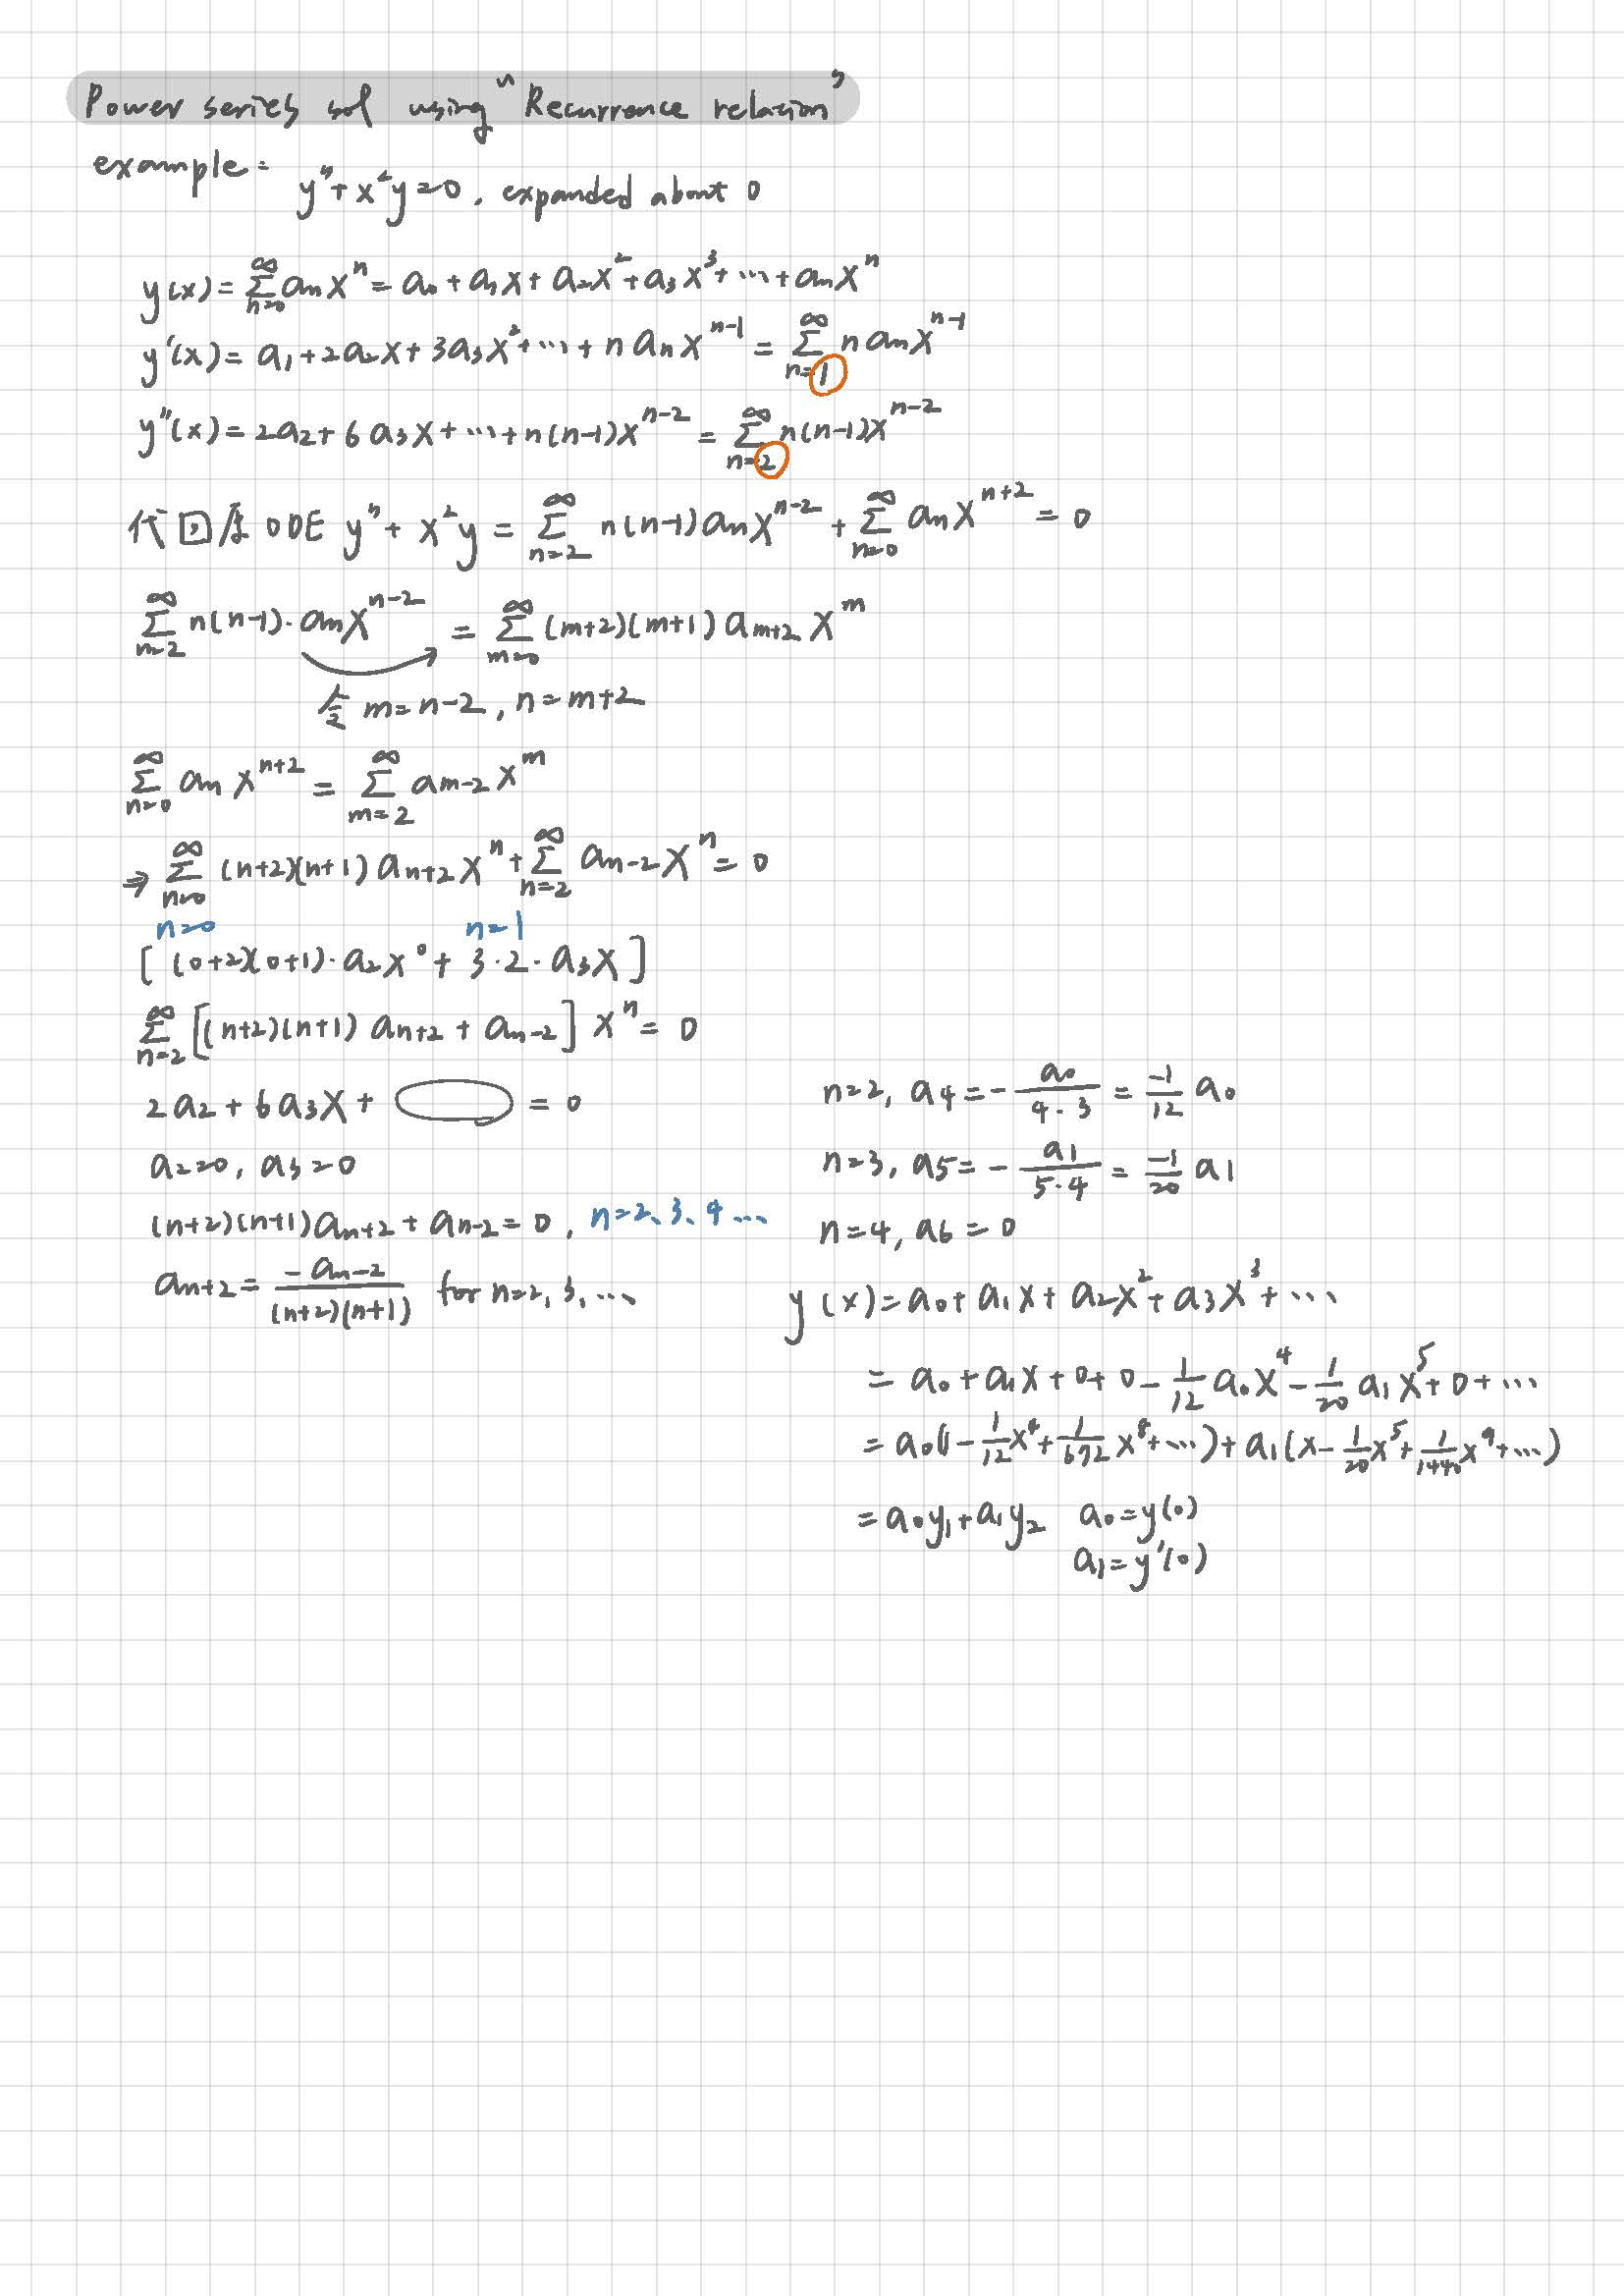 Power series sol using "Recurrence relation"
example:
y"+x²y=0, expanded about 0
y(x)=∑_{n=0}^{∞} aₙxⁿ = a₀+a₁x+a₂x²+a₃x³+⋯+aₙxⁿ
y'(x)=a₁+2a₂x+3a₃x²+⋯+naₙx^{n-1} = ∑_{n=1}^{∞} naₙx^{n-1}
y"(x)=2a₂+6a₃x+⋯+n(n-1)x^{n-2} = ∑_{n=2}^{∞} n(n-1)x^{n-2}
代回原ODE y"+x²y = ∑_{n=2}^{∞} n(n-1)aₙx^{n-2} + ∑_{n=0}^{∞} aₙx^{n+2} = 0
∑_{n=2}^{∞} n(n-1)·aₙx^{n-2} = ∑_{m=0}^{∞} (m+2)(m+1)a_{m+2}x^m
令 m=n-2, n=m+2
∑_{n=0}^{∞} aₙx^{n+2} = ∑_{m=2}^{∞} a_{m-2}x^m
⇒ ∑_{n=0}^{∞} (n+2)(n+1)a_{n+2}xⁿ + ∑_{n=2}^{∞} a_{n-2}xⁿ = 0
n=0 n=1
[(0+2)(0+1)·a₂x⁰ + 3·2·a₃x]
∑_{n=2}^{∞} [(n+2)(n+1)a_{n+2} + a_{n-2}]xⁿ = 0
2a₂+6a₃x+ = 0
a₂=0, a₃=0
(n+2)(n+1)a_{n+2}+a_{n-2}=0, n=2、3、4…
a_{n+2} = -a_{n-2}/((n+2)(n+1)) for n=2, 3, …
n=2, a₄ = -a₀/(4·3) = -1/12 a₀
n=3, a₅ = -a₁/(5·4) = -1/20 a₁
n=4, a₆=0
y(x)=a₀+a₁x+a₂x²+a₃x³+⋯
= a₀+a₁x+0+0-1/12 a₀x⁴-1/20 a₁x⁵+0+⋯
= a₀(1-1/12 x⁴+1/672 x⁸+⋯)+a₁(x-1/20 x⁵+1/1440 x⁹+⋯)
= a₀y₁+a₁y₂ a₀=y(0)
a₁=y'(0)